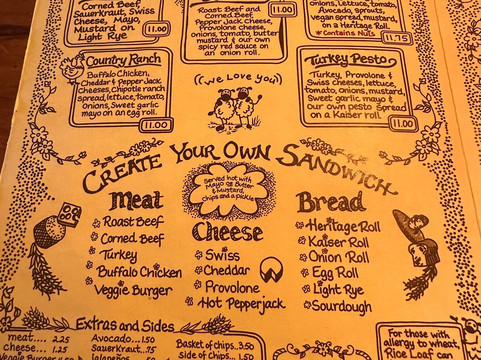 Corned Beef,
Sauerkraut, Swiss
Cheese, Mayo,
Mustard on
Light Rye
11.00
Roast Beef and
Corned Beef,
Pepper Jack Cheese,
Provolone cheese,
onions, tomato, butter
mustard & our own
spicy red sauce on
an onion roll.
11.00
onions, Lettuce, tomato,
Avocado, sprouts,
vegan spread, mustard,
on a Heritage Roll.
*Contains Nuts
11.75
Country Ranch
Buffalo Chicken,
Cheddar & Pepper Jack
cheeses, Chipotle ranch
spread, lettuce, tomato,
Onions, Sweet garlic
mayo on an egg roll.
11.00
((We Love you))
Turkey Pesto
Turkey, Provolone &
Swiss cheeses, lettuce,
tomato, onions, mustard,
Sweet garlic mayo &
our own pesto spread
on a Kaiser roll.
11.00
Create Your Own Sandwich
Served hot with
Mayo or Butter
& Mustard,
Chips and a pickle
Meat
Roast Beef
Corned Beef
Turkey
Buffalo Chicken
Veggie Burger
Cheese
Swiss
Cheddar
Provolone
Hot Pepperjack
Bread
Heritage Roll
Kaiser Roll
Onion Roll
Egg Roll
Light Rye
Sourdough
Extras and Sides
meat.... 2.25
Cheese... 1.25
Veggie Burger
Avocado...1.50
Sauerkraut..75
Jalapeños
Basket of chips..3.50
side of chips..1.50
For those with
allergy to wheat,
Rice Loaf can